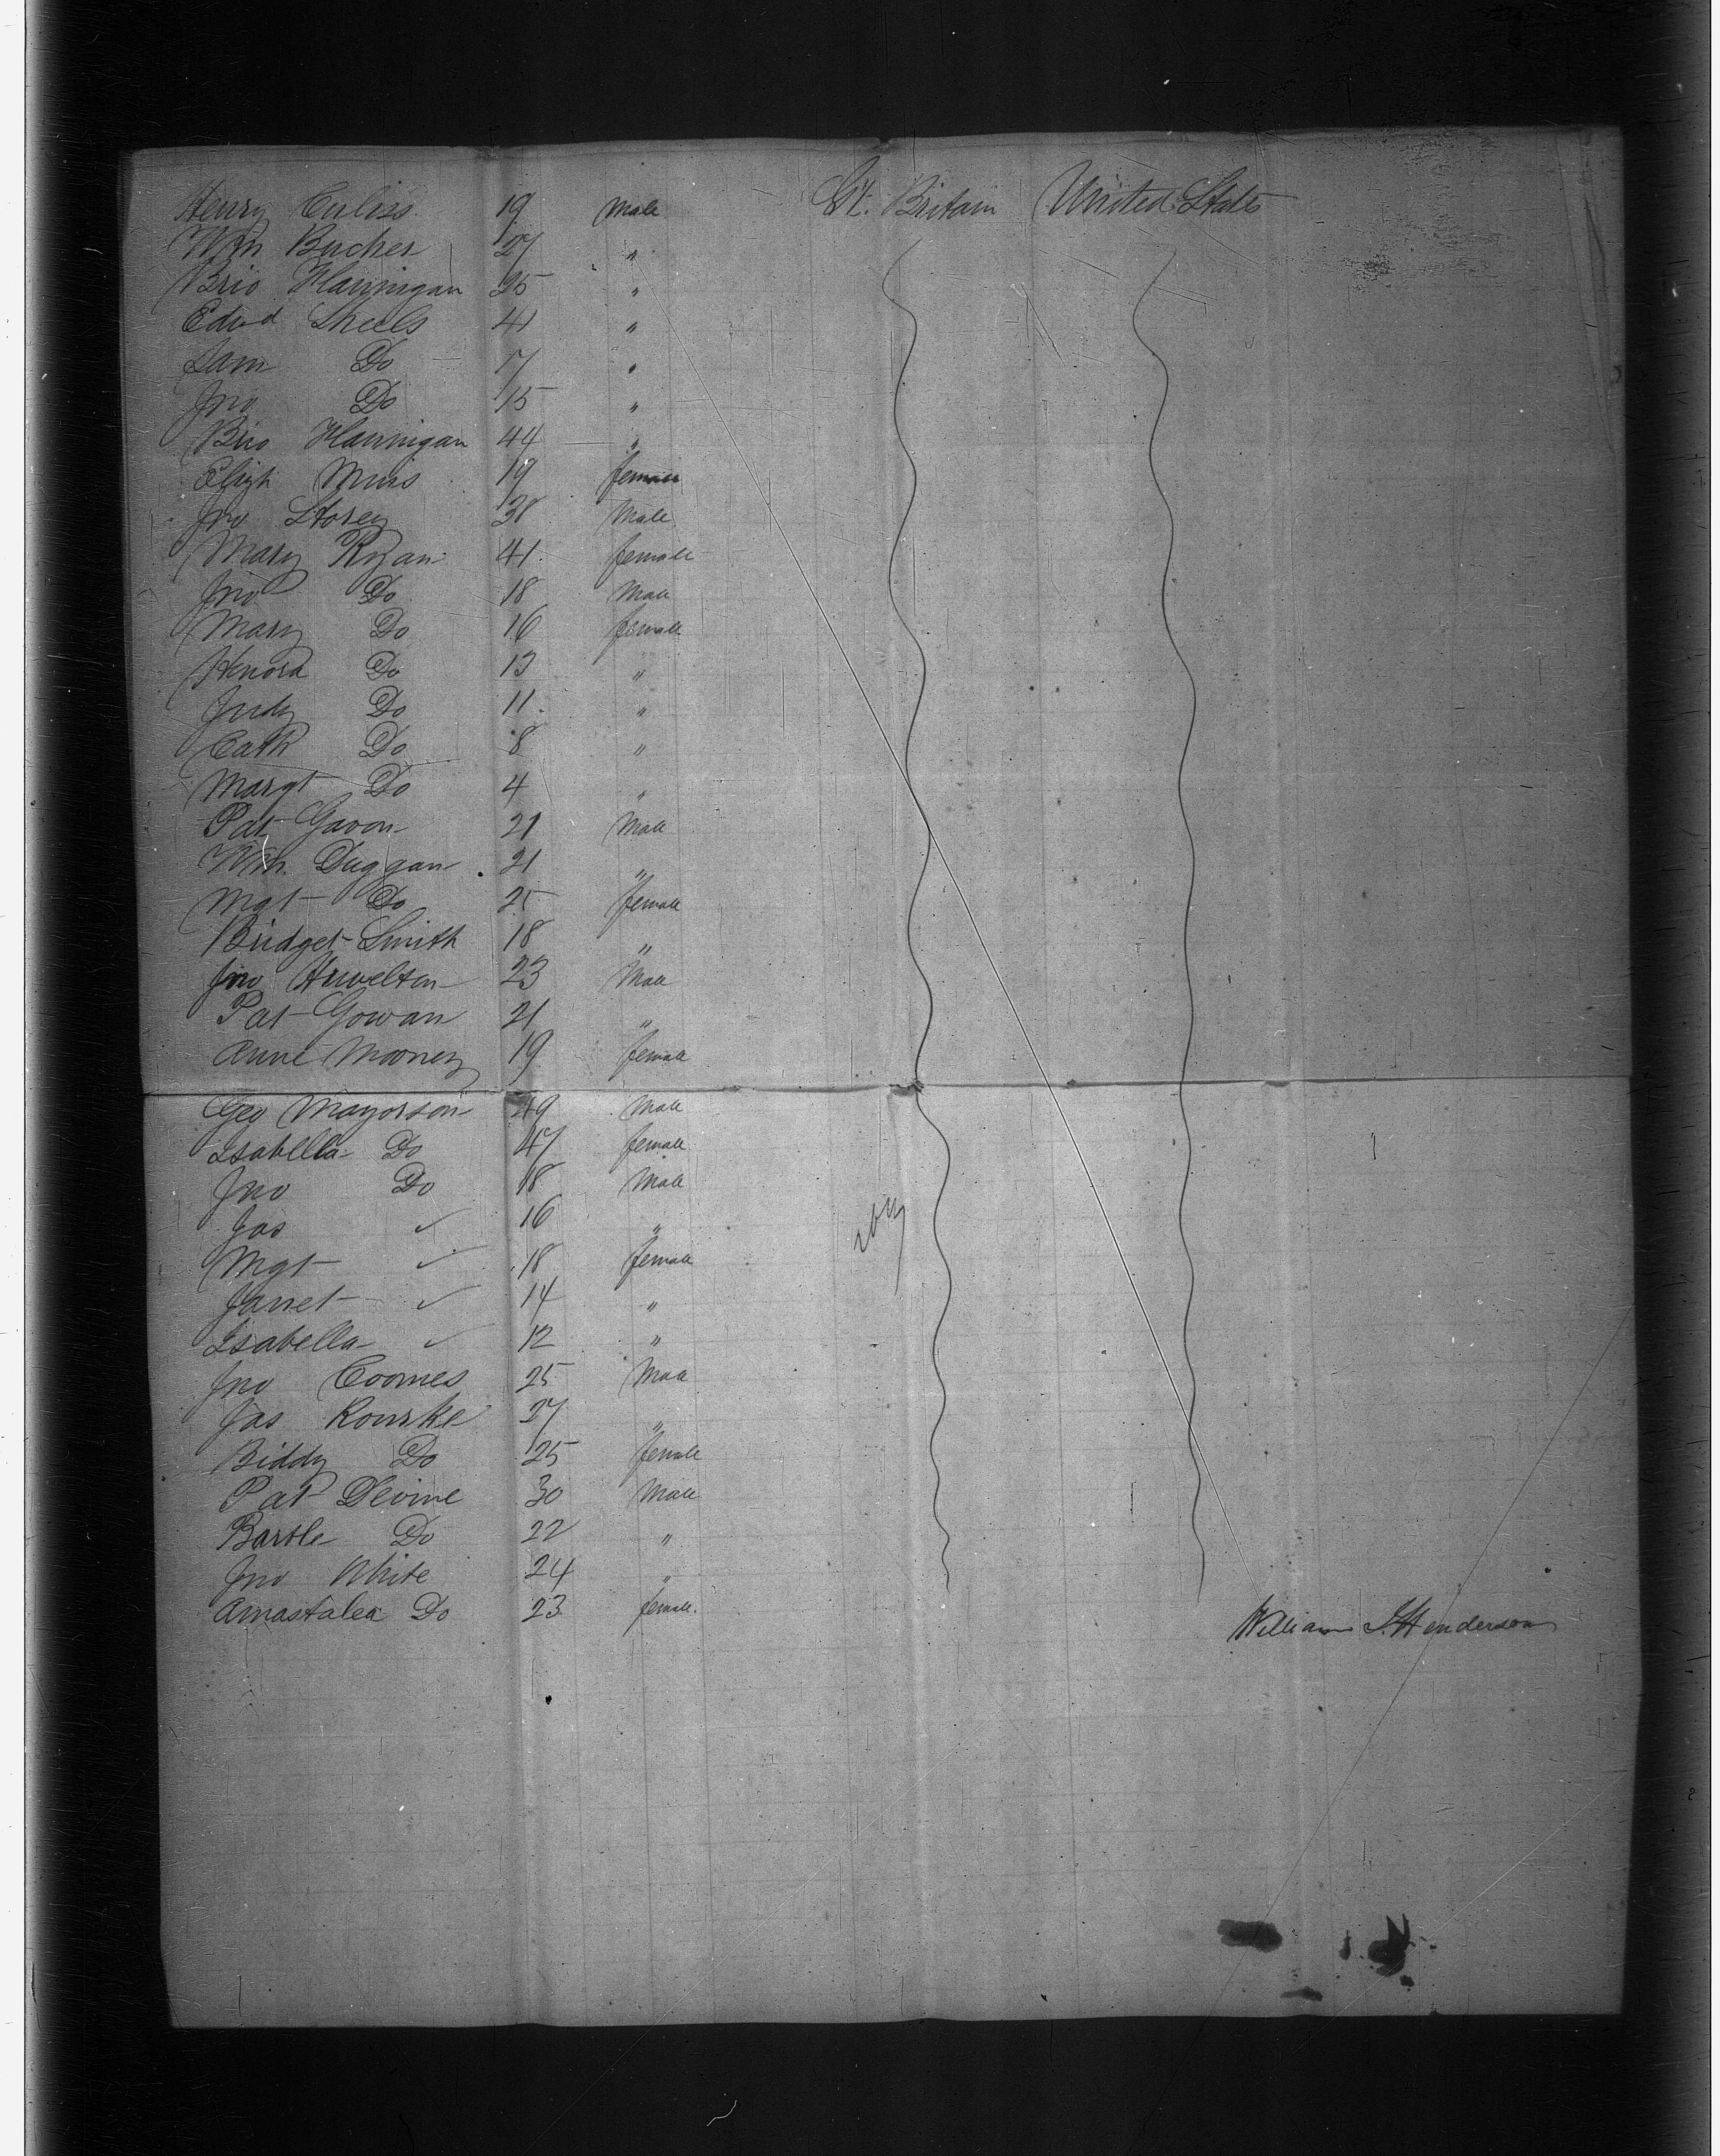 Henry Culiss 19 Male Gt. Britain United States
Wm Bucher 27 "
Brio Hannigan 25 "
Edwd Sheels 41 "
Sam Do 17 "
Jno Do 15 "
Brio Hannigan 44 "
Elizh Muis 19 female
Jno Storey 38 Male
Mary Ryan 41 female
Jno Do 18 Male
Mary Do 16 female
Honora Do 13 "
Judy Do 11 "
Cath Do 8 "
Margt Do 4 "
Pat Gavon 21 Male
Wm. Duggan 21 "
Mgt Do 25 female
Bridget Smith 18 "
Jno Huvelton 23 Male
Pat Gowan 21 "
Anne Mooney 19 female
Geo Mayorson 49 Male
Isabella Do 47 female
Jno Do 18 Male
Jas ✓ 16 "
Mgt ✓ 18 female
Jannet ✓ 14 "
Isabella ✓ 12 "
Jno Coomes 25 Male
Jas Rourke 27 "
Biddy Do 25 female
Pat Devine 30 Male
Bartle Do 22 "
Jno White 24 "
Amastalea Do 23 female.
William S. Henderson